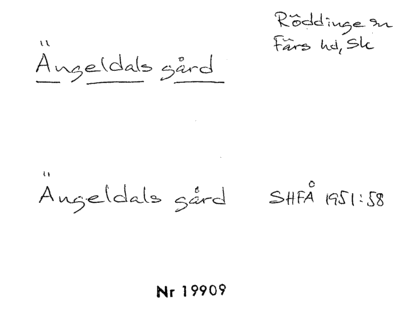 Röddinge sn
Färs hd, Sk
Ängeldals gård
Ängeldals gård SHFÅ 1951:58
Nr 19909